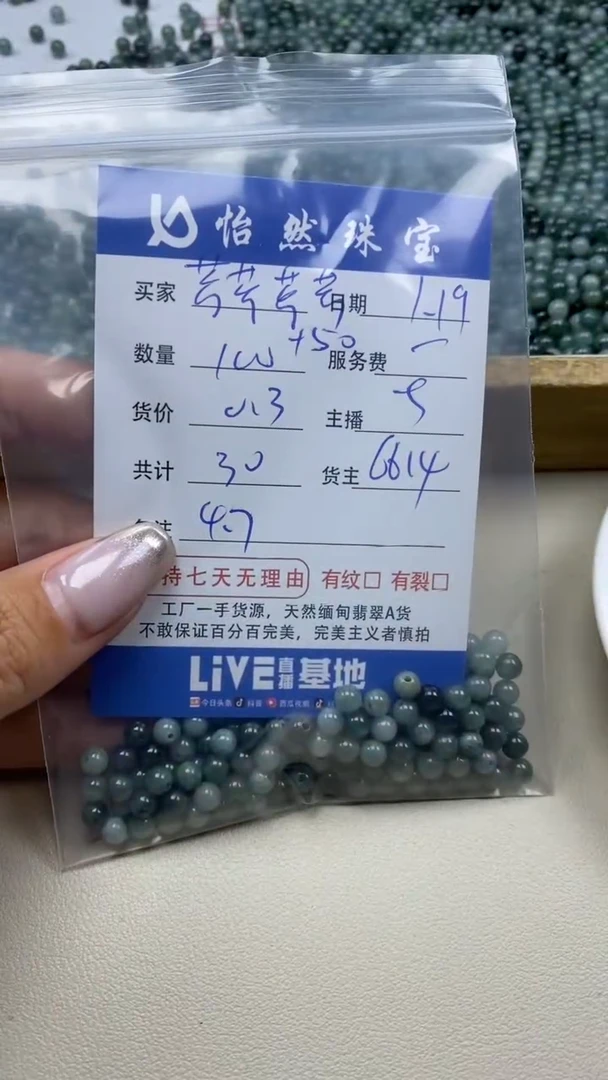 怡然珠宝
买家 苦苦苦苦 日期 1.19
数量 100 +50 服务费 一
货价 0.3 主播
共计 30 货主 6614
4.7
持七天无理由 有纹□ 有裂□
工厂一手货源，天然缅甸翡翠A货
不敢保证百分百完美，完美主义者慎拍
LiVE直播基地
今日头条 抖音 西瓜视频